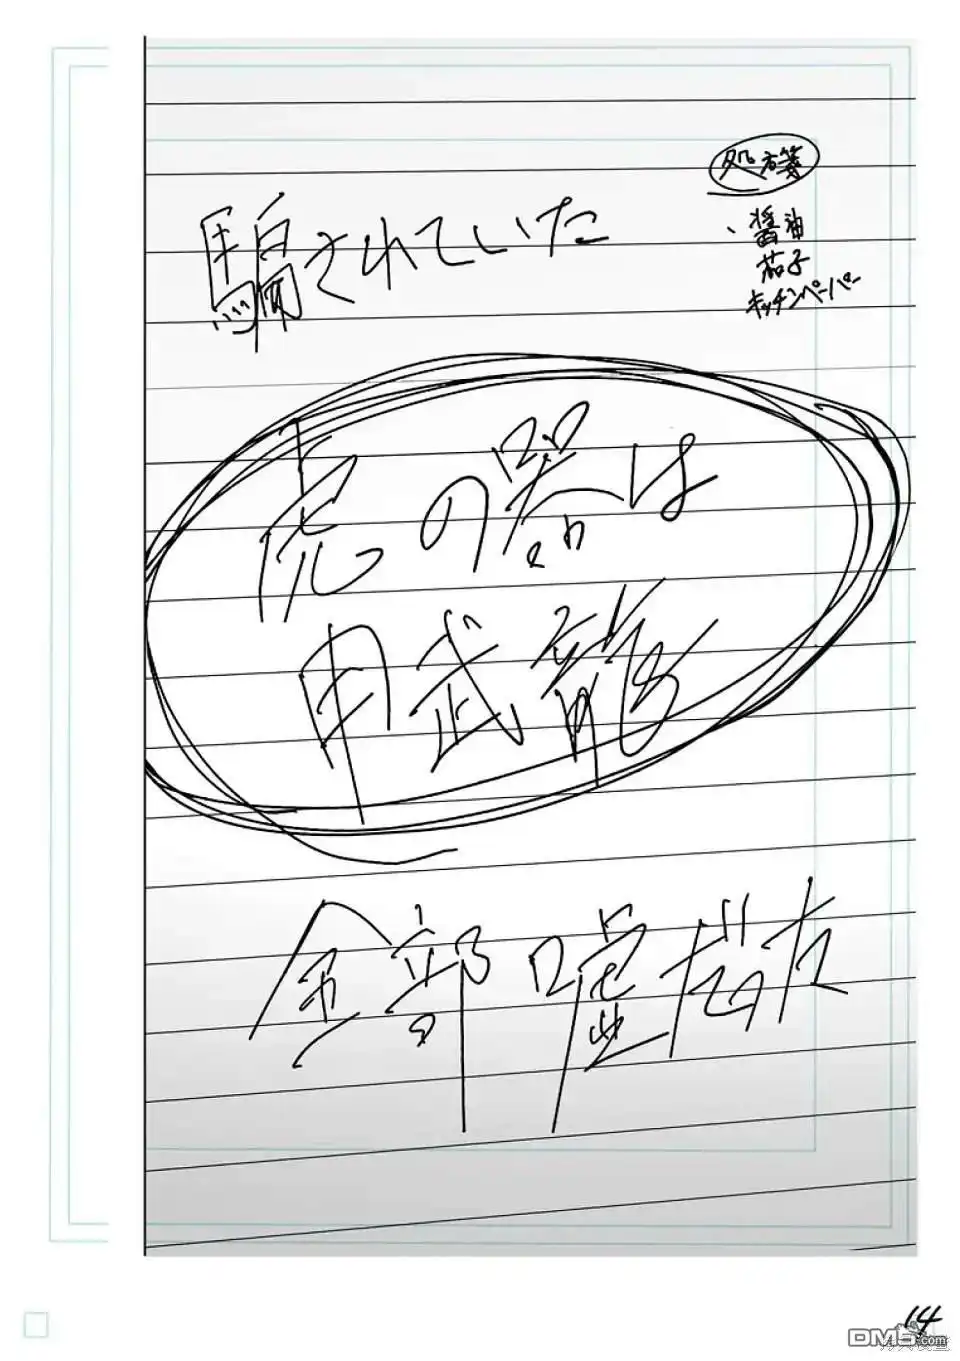 処方箋
、醤油
茄子
キッチンペーパー
騙されていた
虎の咎は
甲武龍
全部嘘だった
14
DM5.com